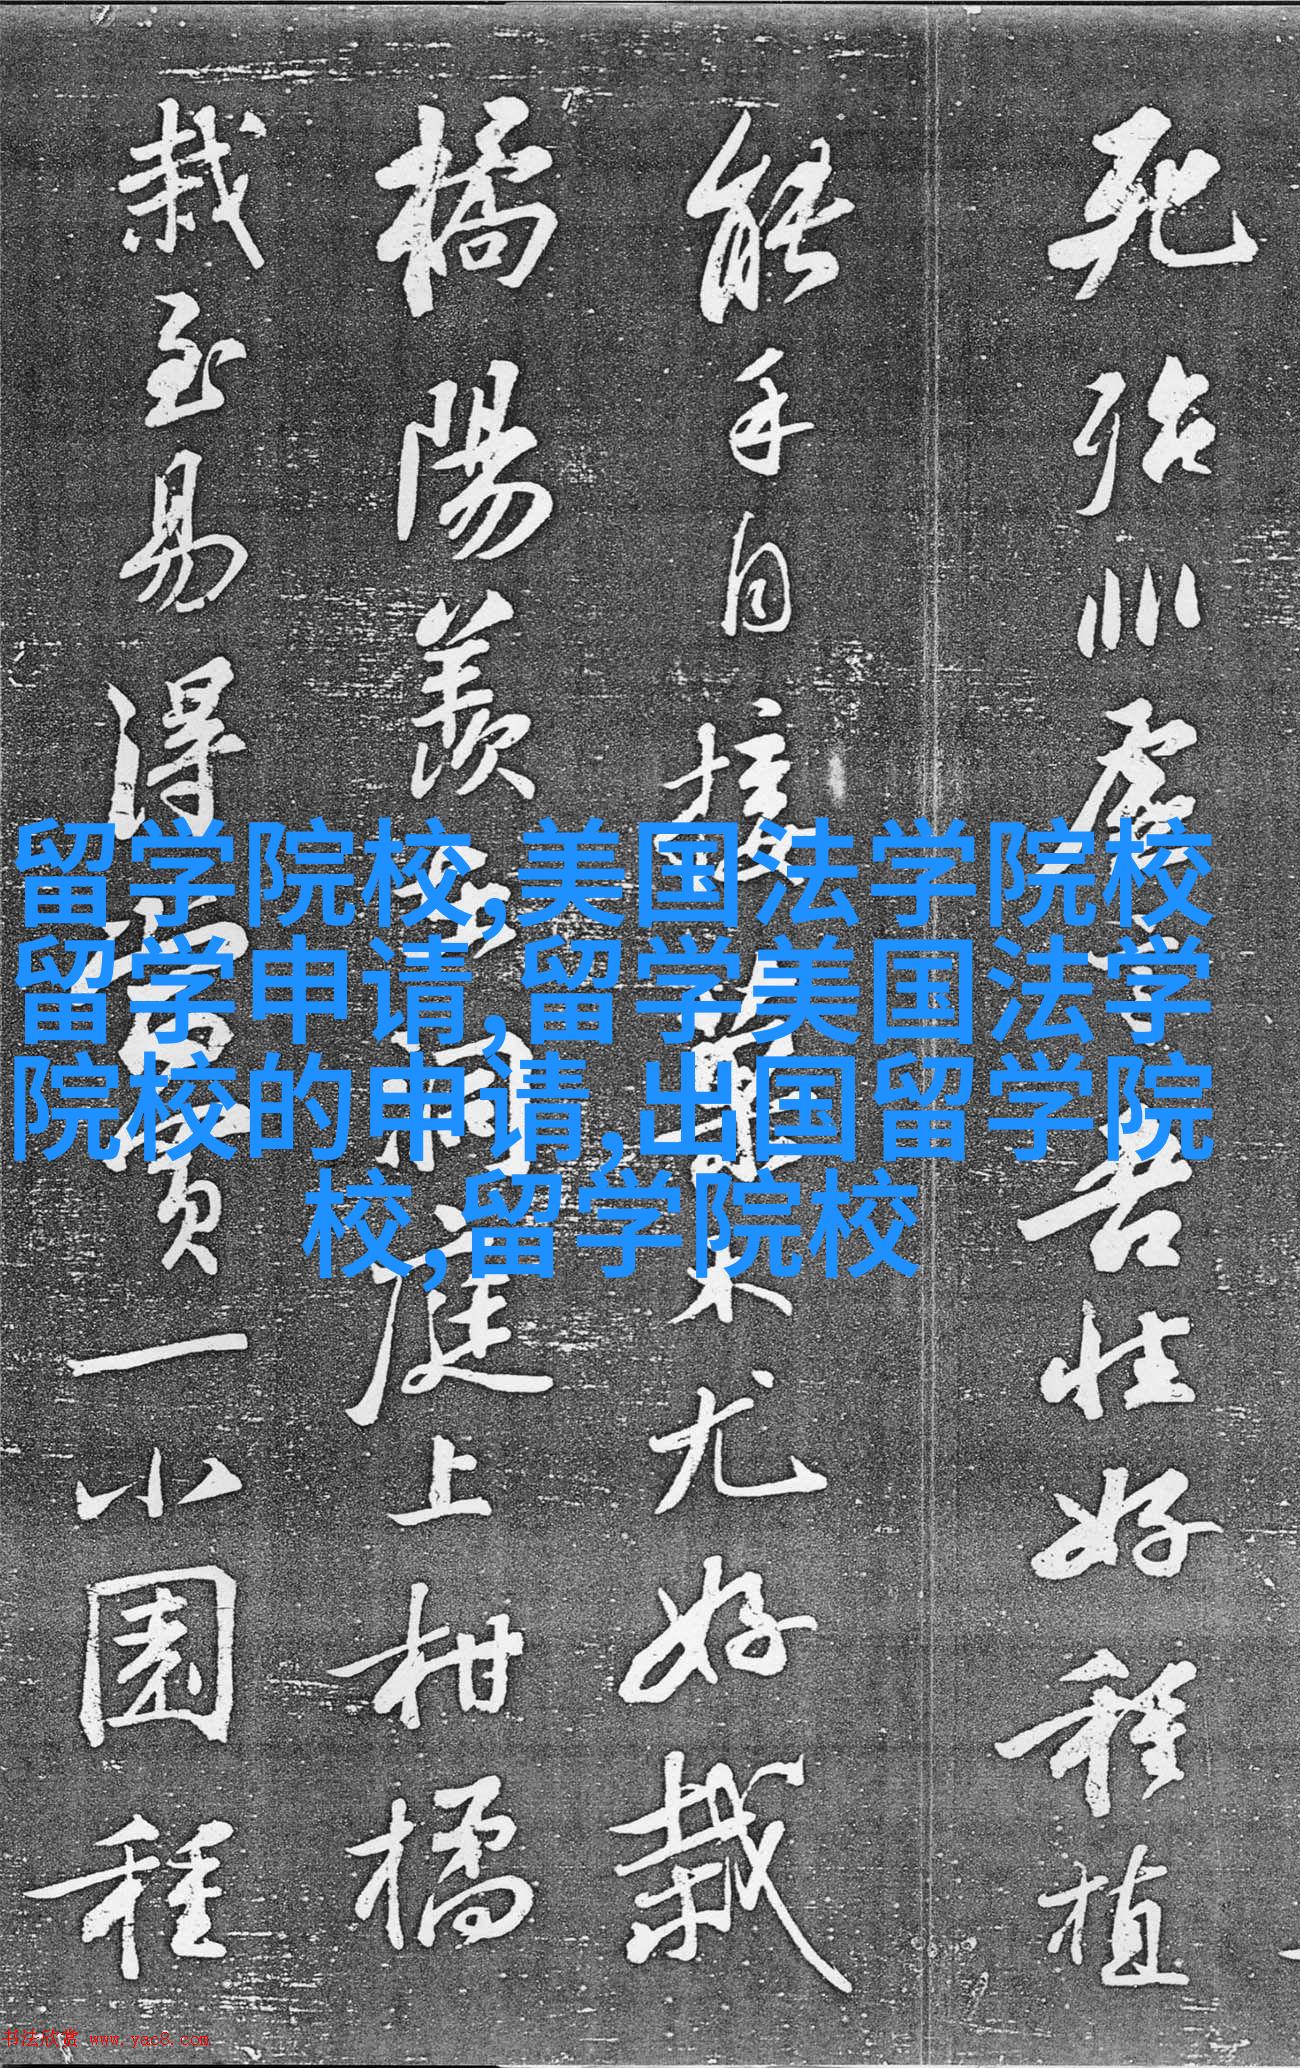 死殆非虚言吾性好種植
能手自接果木尤好栽
橘陽羡在洞庭上柑橘
栽至易得當買一小園種
留学院校,美国法学院校
留学申请,留学美国法学
院校的申请,出国留学院
校,留学院校
书法欣赏 www.yac8.com